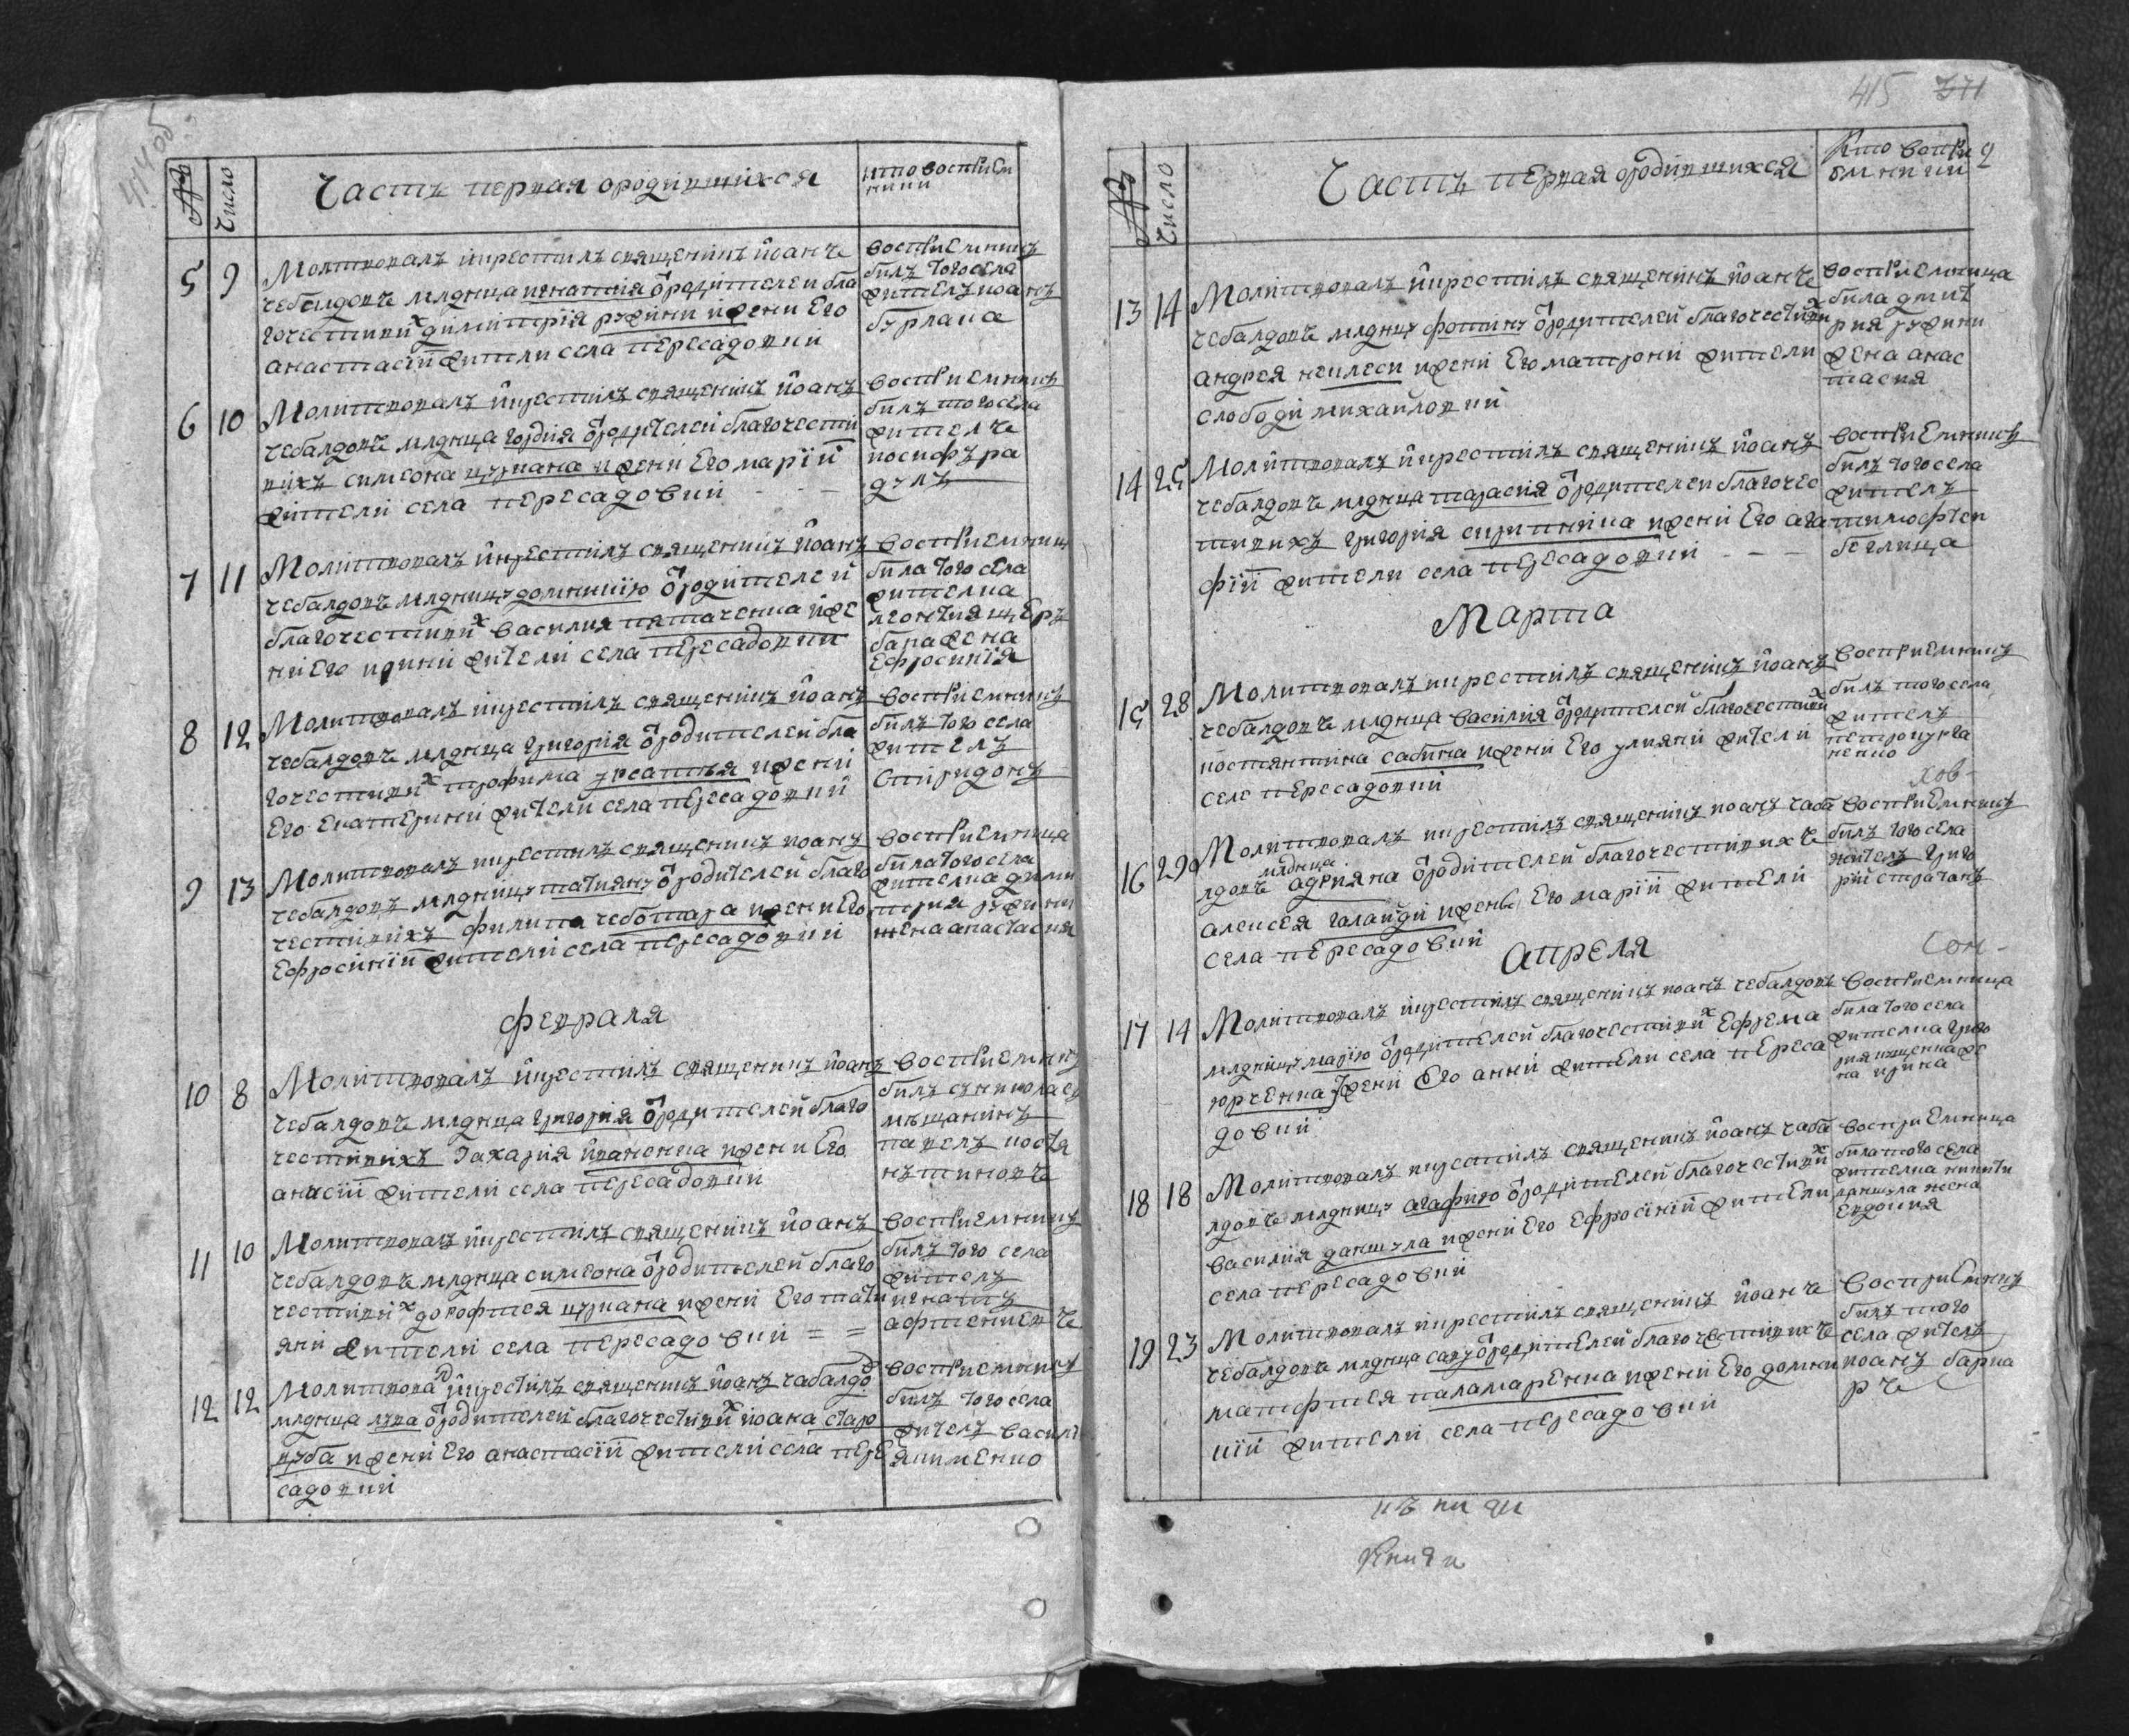 414 об
№
Число
Часть первая ородившихся
кто восприем
ники
5 9
Молитвовалъ икрестилъ священикъ йоанъ
чебалдовъ младнца игнатия ородителей бла
гочестивих димитрїя ружики иժени Его
анастасїи жители села пересадовки
восприемникъ
билъ того села
жителъ иоанъ
бурлака
6 10
Молитвовалъ икрестилъ священикъ йоанъ
чебалдовъ младнца гордия ородителей благочести
вихъ симеона цуркана ижени Его марїи
жители села пересадовки
восприемникъ
билъ того села
жителъ
иосифъ ра
дулъ
7 11
Молитвовалъ икрестилъ священикъ йоанъ
чебалдовъ младницу домникию ородителей
благочестивих василия ткаченка иже
ни Его ирини жители села пересадовки
восприемниц
била того села
жителка
леонтия щер
бана жена
Ефросинїя
8 12
Молитвовалъ икрестилъ священикъ йоанъ
чебалдовъ младнца григория ородителей бла
гочестивих трофима урсатья ижени
Его Екатерини жители села пересадовки
восприемникъ
билъ того села
жителъ
спиридонъ
9 13
Молитвовалъ икрестилъ священикъ иоанъ
чебалдовъ младницу татияну ородителей благо
честивихъ филипа чеботара ижени Его
Ефросинїи жители села пересадовки
восприемница
била того села
жителка дими
трия ружики
жена анастасия
февраля
10 8
Молитвовалъ икрестилъ священикъ йоанъ
чебалдовъ младнца григория ородителей благо
честивихъ Захария иваненка ижени Его
анисїи жители села пересадовки
восприемникъ
билъ
мѣщанинъ
павелъ коста
нтиновъ
11 10
Молитвовалъ икрестилъ священикъ йоанъ
чебалдовъ младнца симеона ородителей благо
честивих дорофтея цуркана ижени Его тати
яни жители села пересадовки = =
восприемникъ
билъ того села
жителъ
игнатъ
афтениевъ
12 12
Молитвова икрестилъ священикъ йоанъ чабалдо
младнца лука ородителей благочестивих иоана старо
куба ижени Его анастасїи жители села пере
садовки
восприемникъ
билъ того села
жителъ васили
якименко
415 371
№
Число
Часть первая ородившихся
Кто воспри
емники
9
13 14
Молитвовалъ икрестилъ священикъ йоанъ
чебалдовъ младнцу фотину ородителей благочестивих
андрея кеилеси ижени Его матрони жители
слободи михайловки
восприемница
била дмит
рия ружики
жена анас
тасия
14 25
Молитвовалъ икрестилъ священикъ йоанъ
чебалдовъ младнца тарасия ородителей благочес
тивихъ григория сиритника ижени Его ага
фїи жители села пересадовки
восприемникъ
билъ того села
жителъ
тимофѣи
беглица
Марта
15 28
Молитвовалъ икрестилъ священикъ йоанъ
чебалдовъ младнца василия ородителей благочестивих
костянтина сабина ижени Его улияни жители
селе пересадовки
восприемникъ
билъ того села
жителъ
петро цука
ненко
хов-
16 29
Молитвовалъ икрестилъ священикъ иоанъ чаба
лдовъ младнца адрияна ородителей благочестивихъ
алексея галайди ижени Его марїи жители
села пересадовки
восприемникъ
билъ того села
жителъ григо
рий страчанъ
Апреля
сон-
17 14
Молитвовалъ икрестилъ священикъ иоанъ чебалдовъ
младницу марїю ородителей благочестивих Ефрема
юрченка ижени Его анни жители села переса
довки
восприемница
била того села
жителка григо
рия ищенка же
на ирина
18 18
Молитвовалъ икрестилъ священикъ йоанъ чаба
лдовъ младнцу агафию ородителей благочестивих
василия даншула ижени Его Ефросинїи жители
села пересадовки
восприемница
била того села
жителка никити
даншула жена
Евдокия
19 23
Молитвовалъ икрестилъ священикъ йоанъ
чебалдовъ младнца саву ородителей благочестивихъ
матфтея паламаренка ижени Его домни
кїи жители села пересадовки
восприемникъ
билъ того
села жителъ
иоанъ барна
ръ